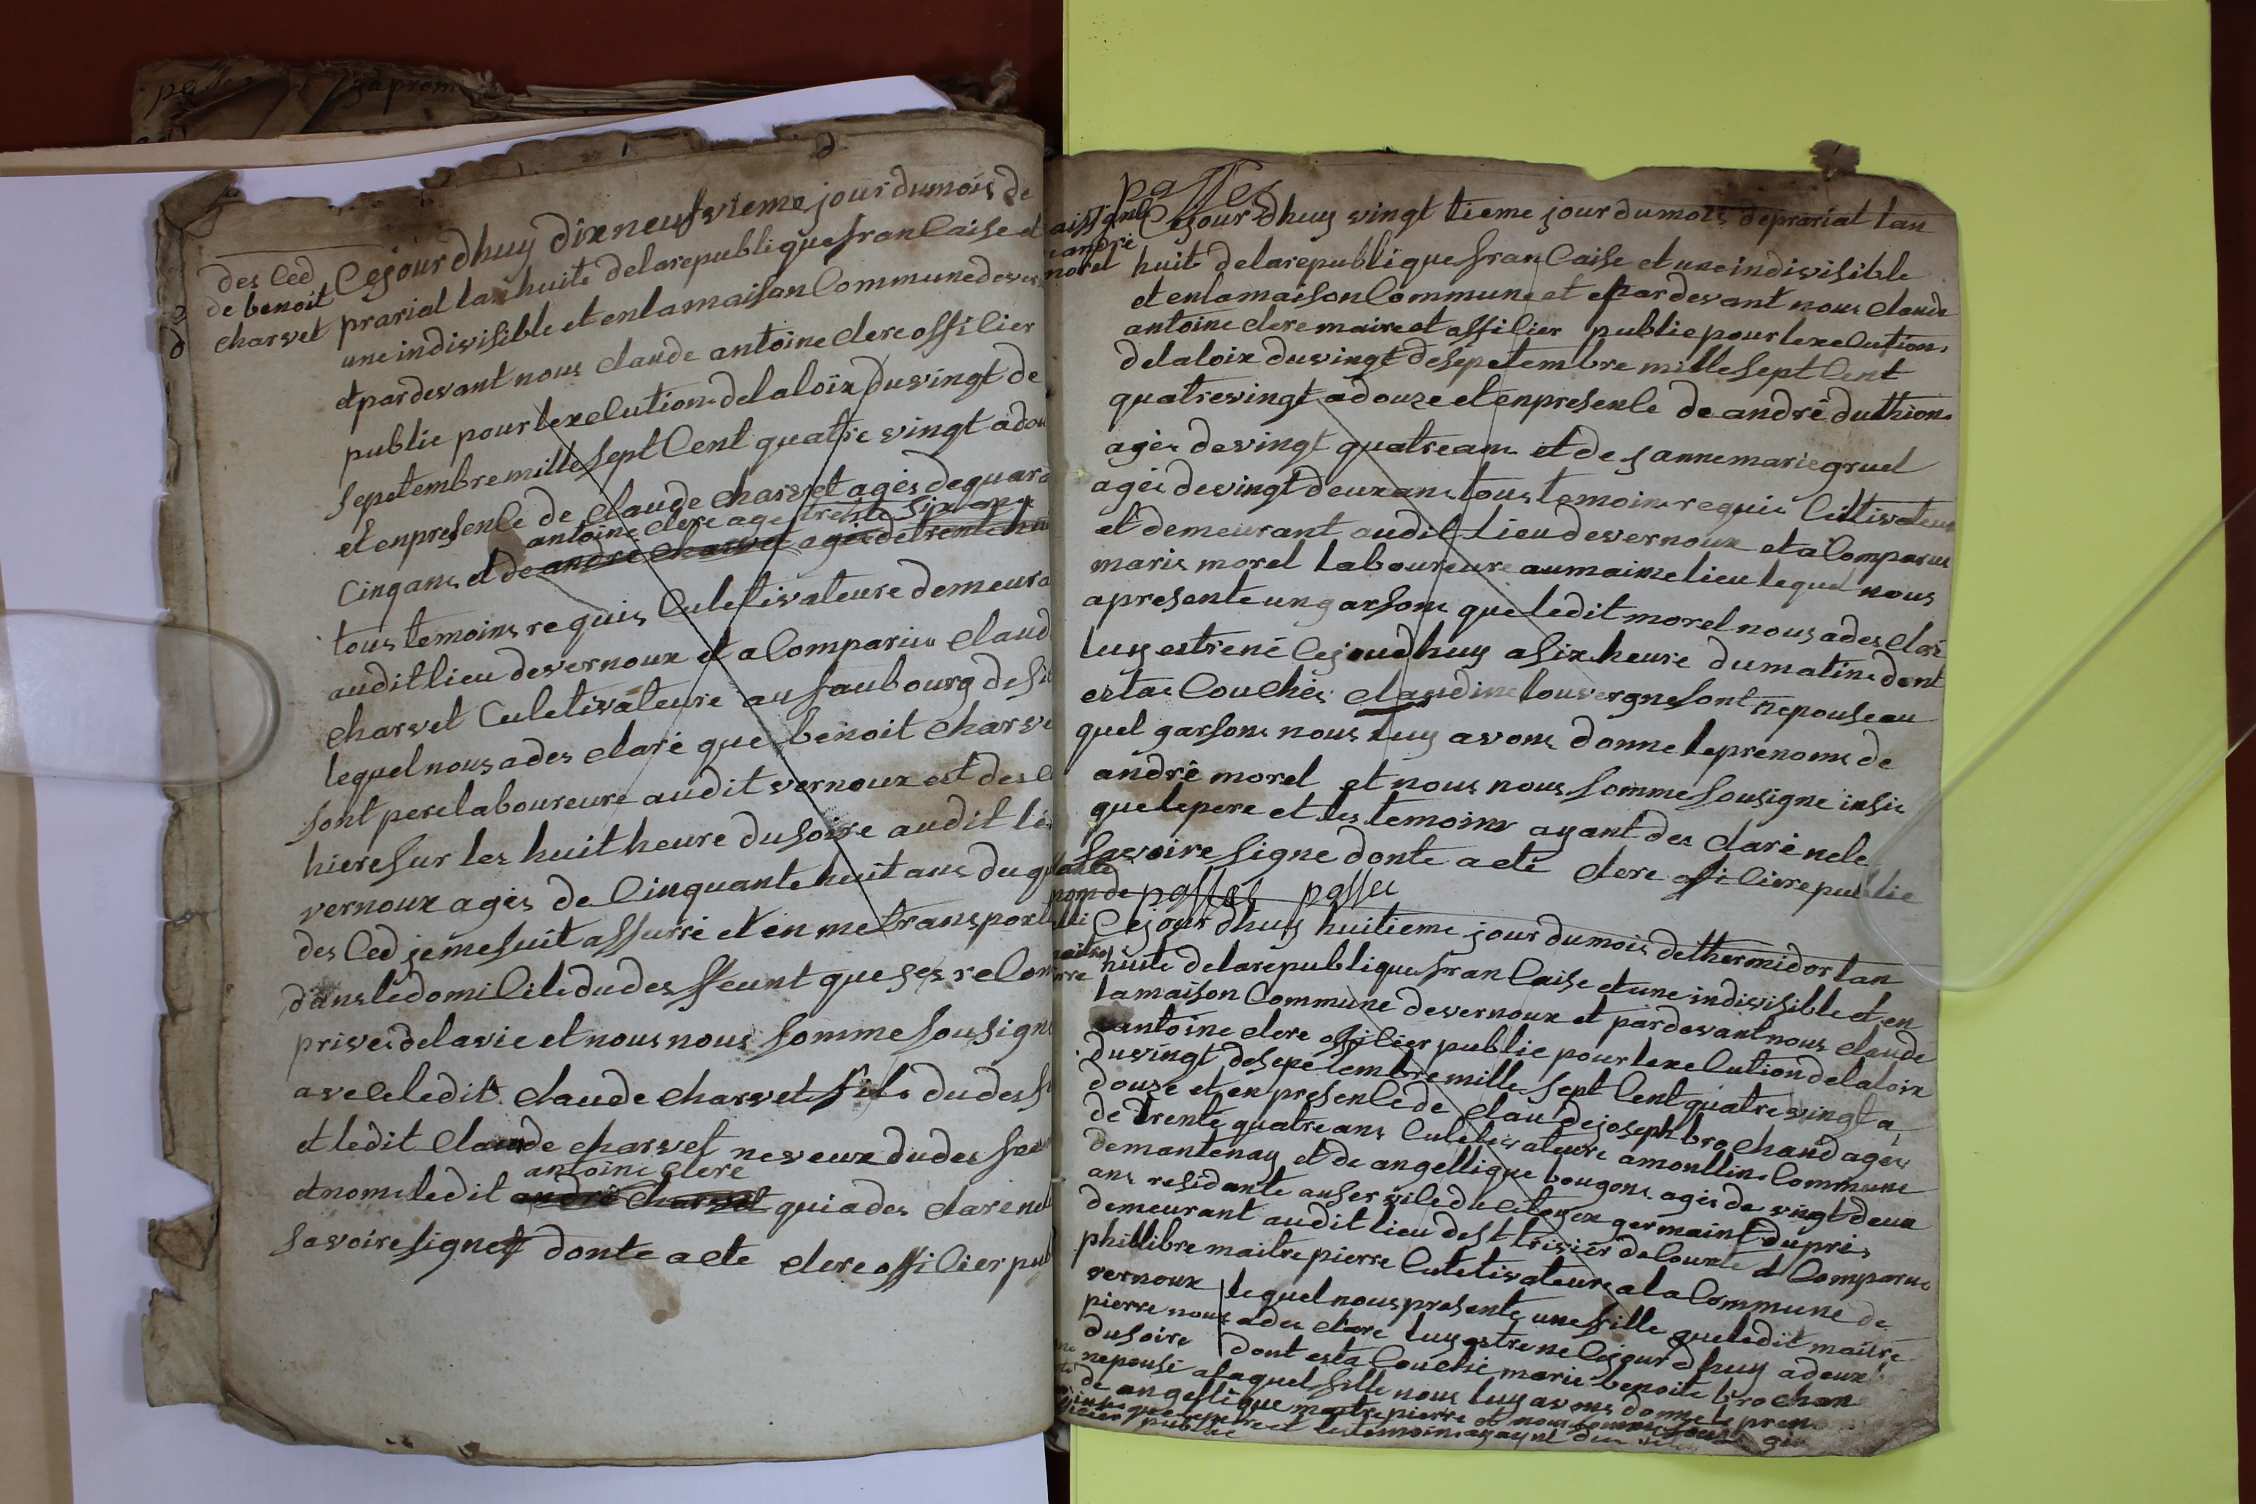 des Ced
de benoit
charvet
Cejourdhuy dixneufvieme jour dumois de
prarial lan huite delarepublique francaise et
une indivisible et enlamaison Commune dever
et pardevant nous claude antoine clere officier
public pour lexecution delaloix duvingt de
sepetembre mille sept Cent quatre vingt adou
et enpresence de claude charvet ages dequara
antoine clere age trente six ans
Cinqans et de andre charvet ages detrente hui
tous temoins requis Culetivateure demeura
audit lieu devernoux et aComparu claud
charvet Culetivateure aufaubourg de
lequel nous ades clare que benoit charve
sont pere laboureure audit vernoux est des C
hiere sur les huit heure dusoire audit li
vernoux ages de Cinquante huit ans duq
des Ced jemesuit assurré et en me transpor
dans ledomicile dudes ffeunt que ses
prives delavie et nous nous somme sousign
avec ledit claude charvet fils dudes f
et ledit claude charvet neveux dudes
antoine clere
et noms ledit andre charvet quiades clare ne
savoire signes donte acte clere officier pub
passes
andre
morel
Cejour dhuy vingt tieme jour dumois deprarial lan
huit delarepublique francaise et une indivisible
et enlamaison Commune et pardevant nous claude
antoine clere maire et officier public pour lexecution
delaloix duvingt desepetembre mille sept Cent
quatrevingt adouze et enpresence de andre duthion
ages devingt quatreans et de jannemarie gruel
ages devingt deuxans tous temoins requis Cultivateur
et demeurant audit lieu devernoux et aComparu
marie morel laboureure aumaime lieu lequel nous
apresente ungarsons que ledit morel nous ades clare
luy estre né Cejourdhuy asix heure dumatin dont
estac Couches claudine louvergne sont nepouse au
quel garsons nous luy avons donne leprenoms de
andré morel et nous nous somme sousigne insie
que lepere et les temoins ayant des clare ne le
savoire signe donte acté clere officiere public
passes passer
Cejour dhuy huitieme jour dumois dethermidor lan
huite delarepublique francaise et une indivisible et en
lamaison Commune devernoux et pardevant nous claude
antoine clere officier public pour lexecution delaloix
duvingt desepetembre mille sept Cent quatre vingt a
douze et en presence de claude joseph brochand ages
de trente quatre ans Culetivateure amoullin Commune
demantenay et de angellique bougons ages de vingt deux
ans residante au service de citoyen germaint dupres
demeurant audit lieu dest trivier deCourte et Comparu
phillibre maitre pierre Culetivateure ala Commune de
vernoux lequel nous presente une fille queledit maitre
pierre nous ades clare luy estre ne Cejour dhuy adeux
dusoire dont esta Couchée marie benoite brochan
nepouse alaquel fille nous luy avons donne le pren
de angellique maitre pierre et nous somme sous
insie que lepere et les temoins ayant des
public